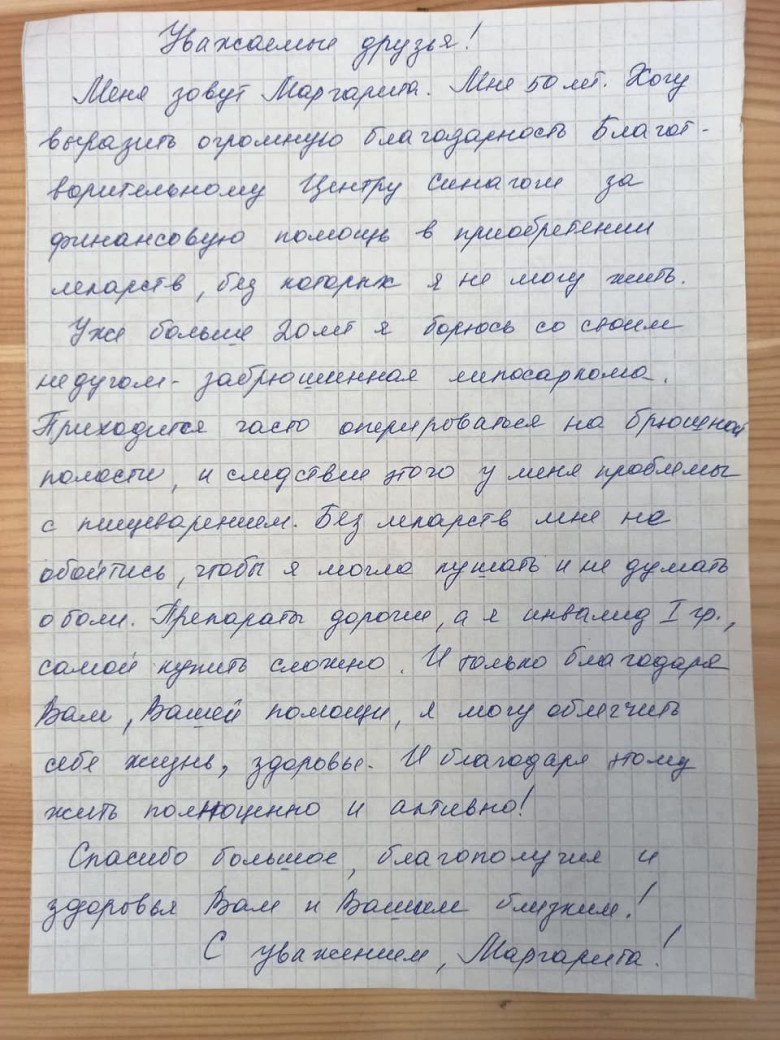 Уважаемые друзья!
Меня зовут Маргарита. Мне 50 лет. Хочу
выразить огромную благодарность Благот-
ворительному Центру Синагоги за
финансовую помощь в приобретении
лекарств, без которых я не могу жить.
Уже больше 20 лет я борюсь со своим
недугом - забрюшинная липосаркома.
Приходится часто оперироваться на брюшной
полости, и следствии этого у меня проблемы
с пищеварением. Без лекарств мне не
обойтись, чтобы я могла кушать и не думать
о боли. Препараты дорогие, а я инвалид I гр.,
самой купить сложно. И только благодаря
Вам, Вашей помощи, я могу облегчить
себе жизнь, здоровье. И благодаря этому
жить полноценно и активно!
Спасибо большое, благополучия и
здоровья Вам и Вашим близким!
С уважением, Маргарита!